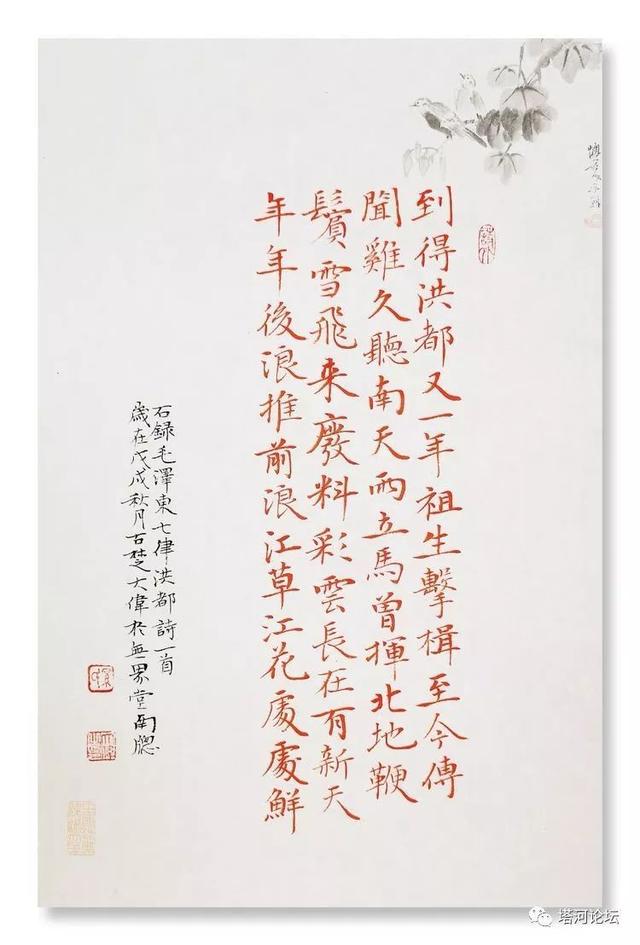 到得洪都又一年祖生擊楫至今傳
聞雞久聽南天雨立馬曾揮北地鞭
鬢雪飛来廢料彩雲長在有新天
年年後浪推前浪江草江花處處鮮
右録毛澤東七律洪都詩一首
歲在戊戌秋月古楚大偉於無界堂南牕
塔河论坛